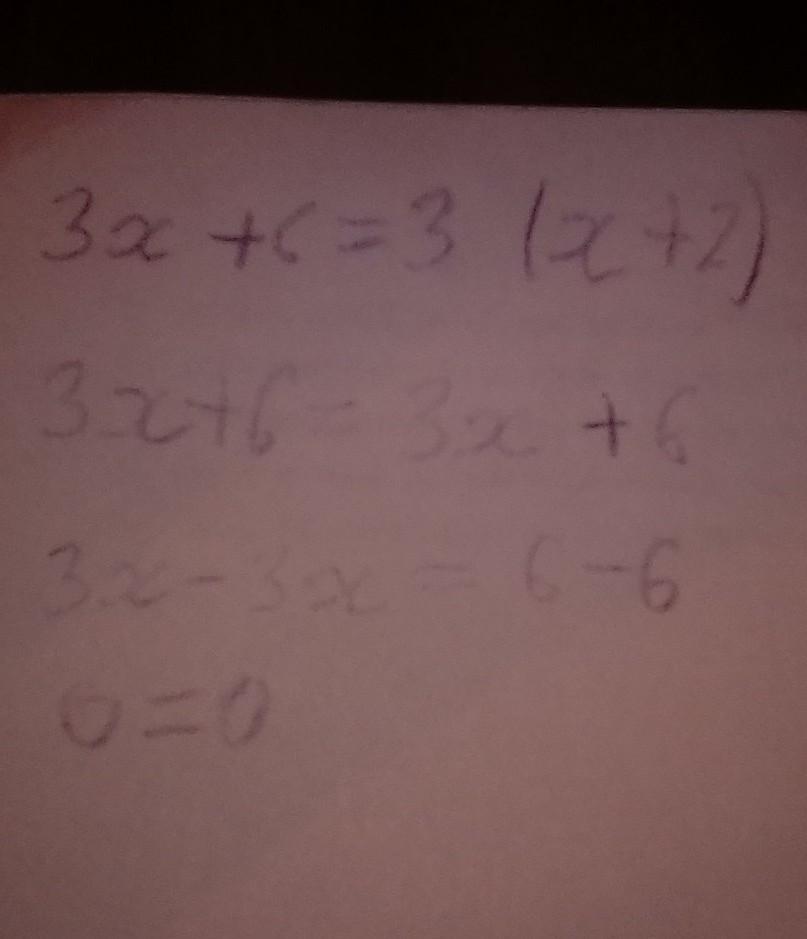 3x + 6 = 3 (x + 2)
3x + 6 = 3x + 6
3x - 3x = 6 - 6
0 = 0